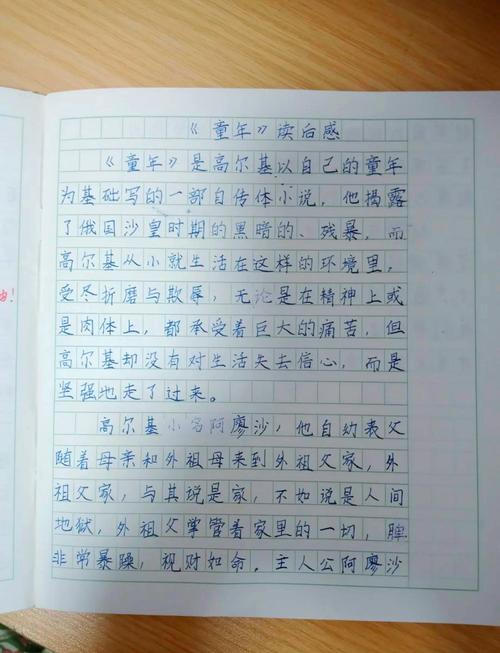 《童年》读后感
《童年》是高尔基以自己的童年
为基础写的一部自传体小说，他揭露
了俄国沙皇时期的黑暗的、残暴，而
高尔基从小就生活在这样的环境里，
受尽折磨与欺辱，无论是在精神上或
是肉体上，都承受着巨大的痛苦，但
高尔基却没有对生活失去信心，而是
坚强地走了过来。
高尔基小名阿廖沙，他自幼丧父
随着母亲和外祖母来到外祖父家，外
祖父家，与其说是家，不如说是人间
地狱，外祖父掌管着家里的一切，脾
非常暴躁，视财如命。主人公阿廖沙
！